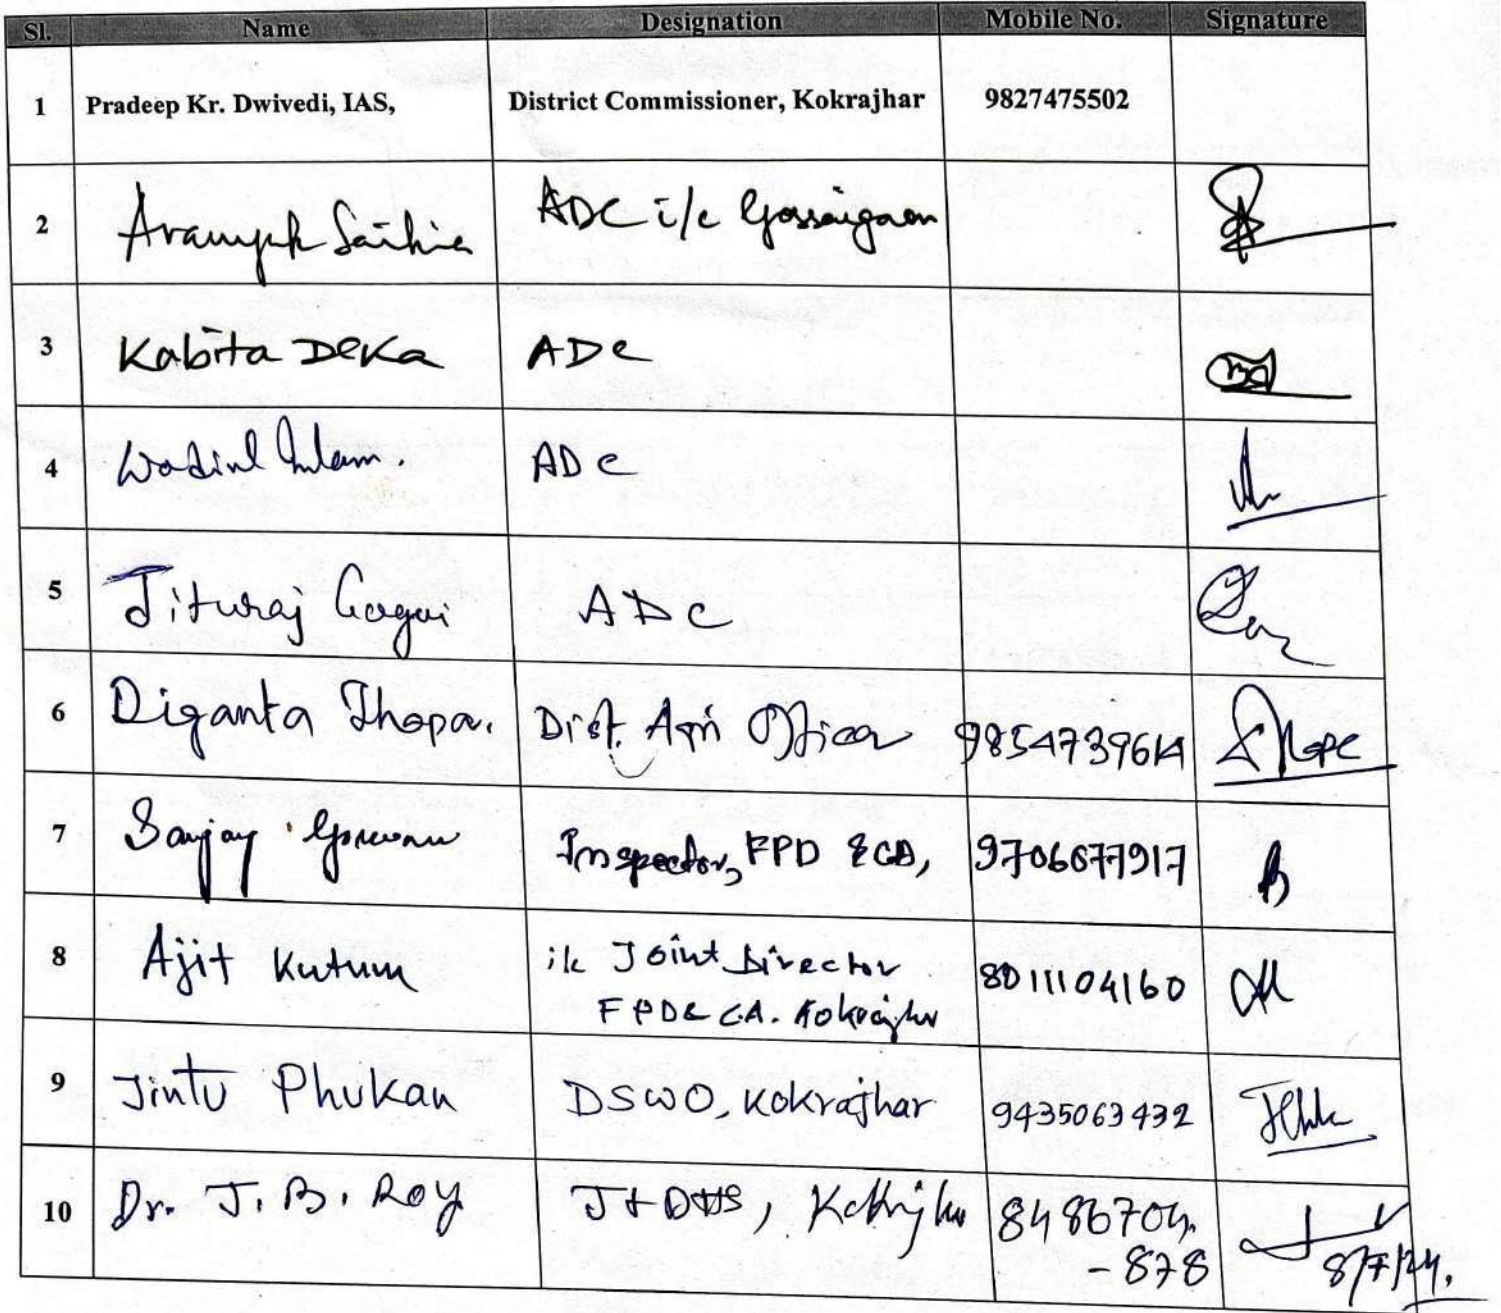 Sl. Name Designation Mobile No. Signature
1 Pradeep Kr. Dwivedi, IAS, District Commissioner, Kokrajhar 9827475502
2 Saikia ADC i/c Gossaigaon
3 Kabita Deka ADC
4 ADC
5 Jituraj Gogoi ADC
6 Diganta Thapa. Dist. Agri Officer 9854739614
7 Sanjay Inspector, FPD &CA, 9706677917
8 Ajit Kutum i/c Joint Director 8011104160
FPD& CA. Kokrajhar
9 Jintu Phukan DSWO, Kokrajhar 9435063432
10 Dr. J. B. Roy Jt DHS, Kokrajhar 8486704
-878 8/7/24.